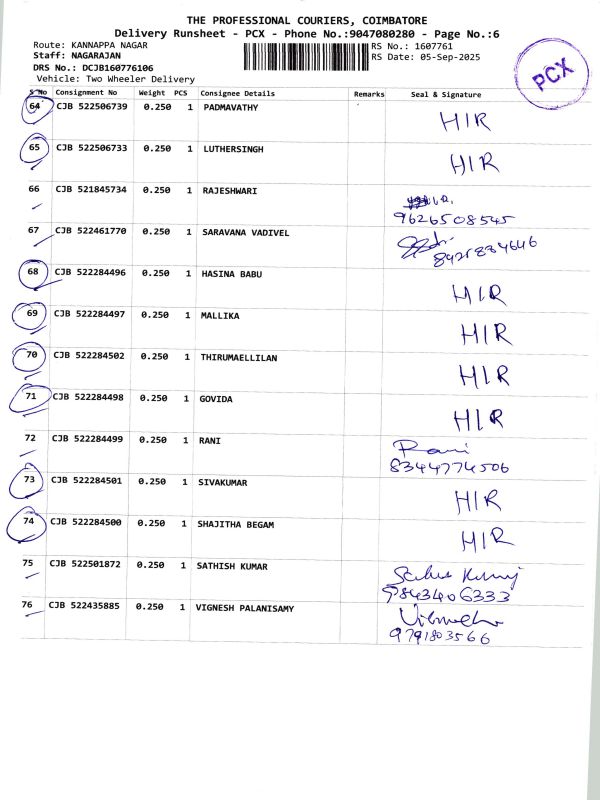 THE PROFESSIONAL COURIERS, COIMBATORE
Delivery Runsheet - PCX - Phone No.:9047080280 - Page No.:6
Route: KANNAPPA NAGAR
RS No.: 1607761
Staff: NAGARAJAN
RS Date: 05-Sep-2025
DRS No.: DCJB160776106
Vehicle: Two Wheeler Delivery
PCX
S No Consignment No Weight PCS Consignee Details Remarks Seal & Signature
64 CJB 522506739 0.250 1 PADMAVATHY HIR
65 CJB 522506733 0.250 1 LUTHERSINGH HIR
66 CJB 521845734 0.250 1 RAJESHWARI
9626508545
67 CJB 522461770 0.250 1 SARAVANA VADIVEL
68 CJB 522284496 0.250 1 HASINA BABU HIR
69 CJB 522284497 0.250 1 MALLIKA HIR
70 CJB 522284502 0.250 1 THIRUMAELLILAN HIR
71 CJB 522284498 0.250 1 GOVIDA HIR
72 CJB 522284499 0.250 1 RANI Rani
8344774506
73 CJB 522284501 0.250 1 SIVAKUMAR HIR
74 CJB 522284500 0.250 1 SHAJITHA BEGAM HIR
75 CJB 522501872 0.250 1 SATHISH KUMAR
9843406333
76 CJB 522435885 0.250 1 VIGNESH PALANISAMY
9791803566